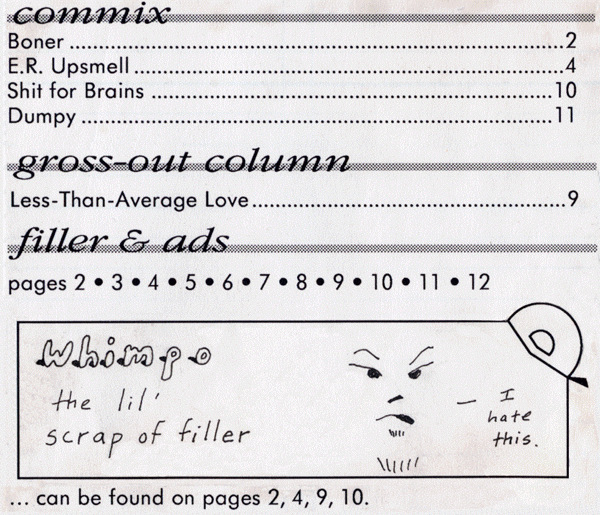 commix
Boner ........................................................................2
E.R. Upsmell ...............................................................4
Shit for Brains ............................................................10
Dumpy ......................................................................11
gross-out column
Less-Than-Average Love..............................................9
filler & ads
pages 2 • 3 • 4 • 5 • 6 • 7 • 8 • 9 • 10 • 11 • 12
Whimpo
the lil'
scrap of filler
— I
hate
this.
... can be found on pages 2, 4, 9, 10.